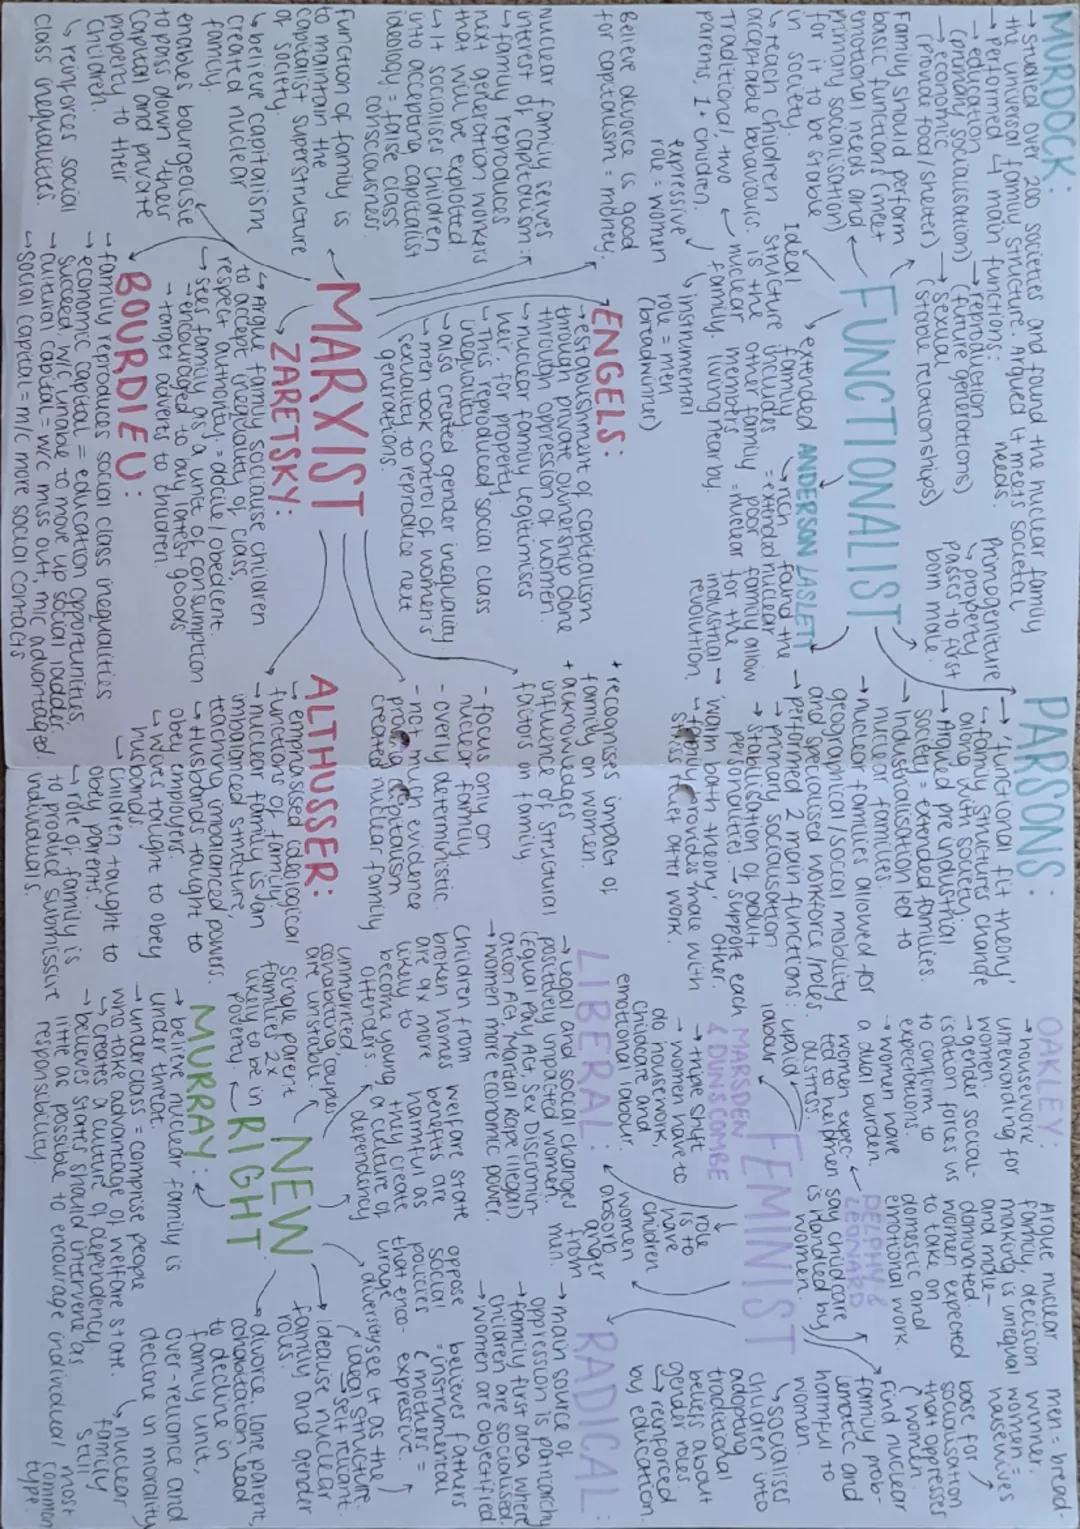 MURDOCK:
→ studied over 200 societies and found the nuclear family
the universal family structure. Argued it meets societal
→ performed 4 main functions: needs.
→ education → reproduction
(primary socialisation) (future generations)
→ economic → sexual
(provide food/shelter) (stable relationships)
Primogeniture
↳ property
passes to first
born male.
PARSONS:
→ 'functional fit theory'
↳ family structures change
along with society.
→ Argued pre industrial
society = extended families.
→ Industrialisation led to
nuclear families.
→ nuclear families allowed for
geographical/social mobility
and specialised workforce/roles.
→ performed 2 main functions:
→ primary socialisation
→ stabilisation of adult
personalities → support each
other.
→ 'warm bath theory'
↳ family provides male with
stress relief after work.
FUNCTIONALIST
Family should perform
basic functions (meet
emotional needs and
primary socialisation)
for it to be stable
in society.
↳ teach children
acceptable behaviours.
Traditional, two
parents, 1+ children.
Ideal family
structure includes
is the other family
nuclear members
family. living nearby.
extended
expressive
role = women
instrumental
role = men
(breadwinner)
ANDERSON
↳ rich
= extended
poor
= nuclear
LASLETT
found the
nuclear
family allow
for the
industrial
revolution.
Believe divorce is good
for capitalism = money.
nuclear family serves
interest of capitalism.
↳ family reproduces
next generation workers
that will be exploited
↳ It socialises children
into accepting capitalist
ideology = false class
consciousness.
function of family is
to maintain the
capitalist superstructure
of society.
↳ believe capitalism
created nuclear
family.
enables bourgeoisie
to pass down their
capital and private
property to their
children.
↳ reinforces social
class inequalities
MARXIST
ENGELS:
→ establishment of capitalism
through private ownership done
through oppression of women.
↳ nuclear family legitimises
heir, for property.
↳ This reproduced social class
inequality.
→ also created gender inequality.
→ men took control of women's
sexuality to reproduce next
generations.
ZARETSKY:
↳ Argue family socialise children
to accept inequality of class,
respect authority = docile/obedient.
→ sees family as a unit of consumption
→ encouraged to buy latest goods
→ target adverts to children
BOURDIEU:
→ family reproduces social class inequalities
→ economic capital = education opportunities
succeed, w/c unable to move up social ladder.
→ cultural capital = w/c miss out, m/c advantaged.
→ social capital = m/c more social contacts
+ recognises impact of
family on women.
+ acknowledges
influence of structural
factors on family
- focus only on
nuclear family
- overly deterministic.
- not much evidence
proving capitalism
created nuclear family
ALTHUSSER:
→ emphasised ideological
functions of family.
→ nuclear family is an
imbalanced structure,
teaching imbalanced powers.
↳ Husbands taught to
obey employers.
↳ Wives taught to obey
husbands.
↳ Children taught to
obey parents.
↳ role of family is
to produce submissive
individuals.
OAKLEY:
→ housework
unrewarding for
women.
→ gender social-
isation forces us
to conform to
expectations.
→ women have
a dual burden.
Argue nuclear
family, decision
making is unequal
and male-
dominated.
women expected
to take on
domestic and
emotional work.
men = bread-
winner.
women =
housewives
base for
socialisation
that oppresses
women
DELPHY &
LEONARD
Find nuclear
family prob-
lematic and
harmful to
women.
FEMINIST
women expec-
ted to help men
distress.
unpaid
labour
say childcare
is handled by
women.
↳ socialises
children into
adopting
traditional
beliefs about
gender roles.
↳ reinforced
by education.
MARSDEN
& DUNSCOMBE
→ triple shift
→ women have to
do housework,
childcare and
emotional labour.
role
is to
have
children
women
absorb
anger
from
men.
LIBERAL:
→ Legal and social changes
positively impacted women.
(Equal Pay Act, Sex Discrimin-
ation Act, Marital Rape illegal)
→ women more economic power.
RADICAL:
→ main source of
oppression is patriarchy
→ family first area where
children are socialised.
→ women are objectified.
NEW RIGHT
Children from
broken homes
are 9x more
likely to
become young
offenders.
welfare state
benefits are
harmful as
they create
a culture of
dependency
oppose
social
policies
that enco-
urage
diversity
believes fathers
= instrumental
(mothers =
expressive.
see it as the
ideal structure.
↳ self reliant.
idealise nuclear
family and gender
roles.
unmarried
cohabiting couples
are unstable.
single parent
families 2x
likely to be in
poverty.
→ divorce, lone parent,
cohabitation lead
to decline in
family unit,
over-reliance and
decline in morality
↳ nuclear
family
still
most
common
type.
MURRAY:
→ believe nuclear family is
under threat.
→ underclass = comprise people
who take advantage of welfare state.
↳ creates a culture of dependency.
→ believes state should intervene as
little as possible to encourage individual
responsibility.